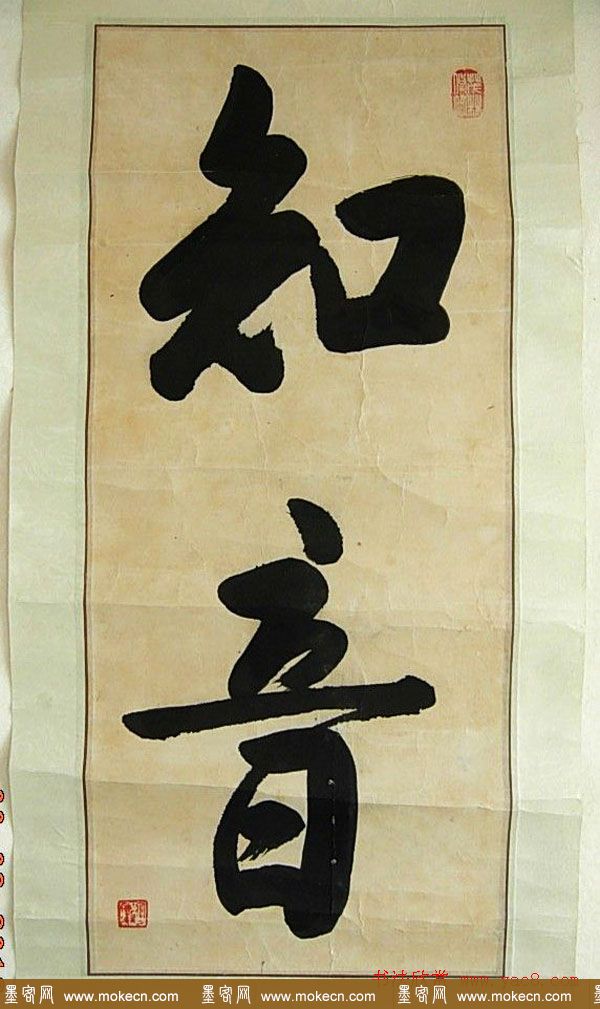 知
音
书法欣赏 www.yac8.com
墨客网 www.mokecn.com 墨客网 www.mokecn.com 墨客网 www.mokecn.com